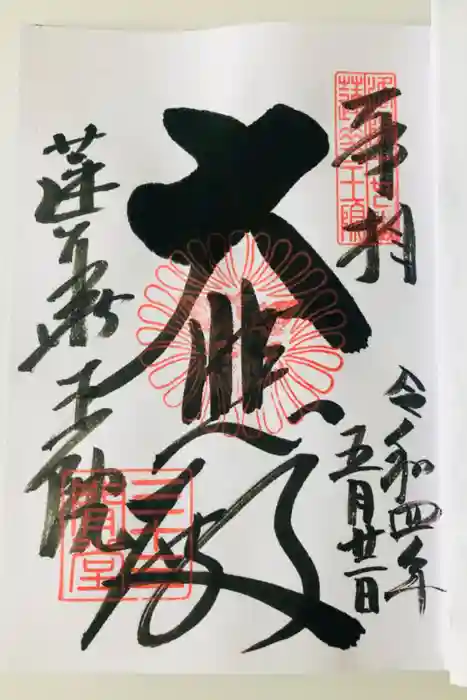 奉拝
令和四年
五月廿一日
大悲殿
蓮華王院
三十三
間堂